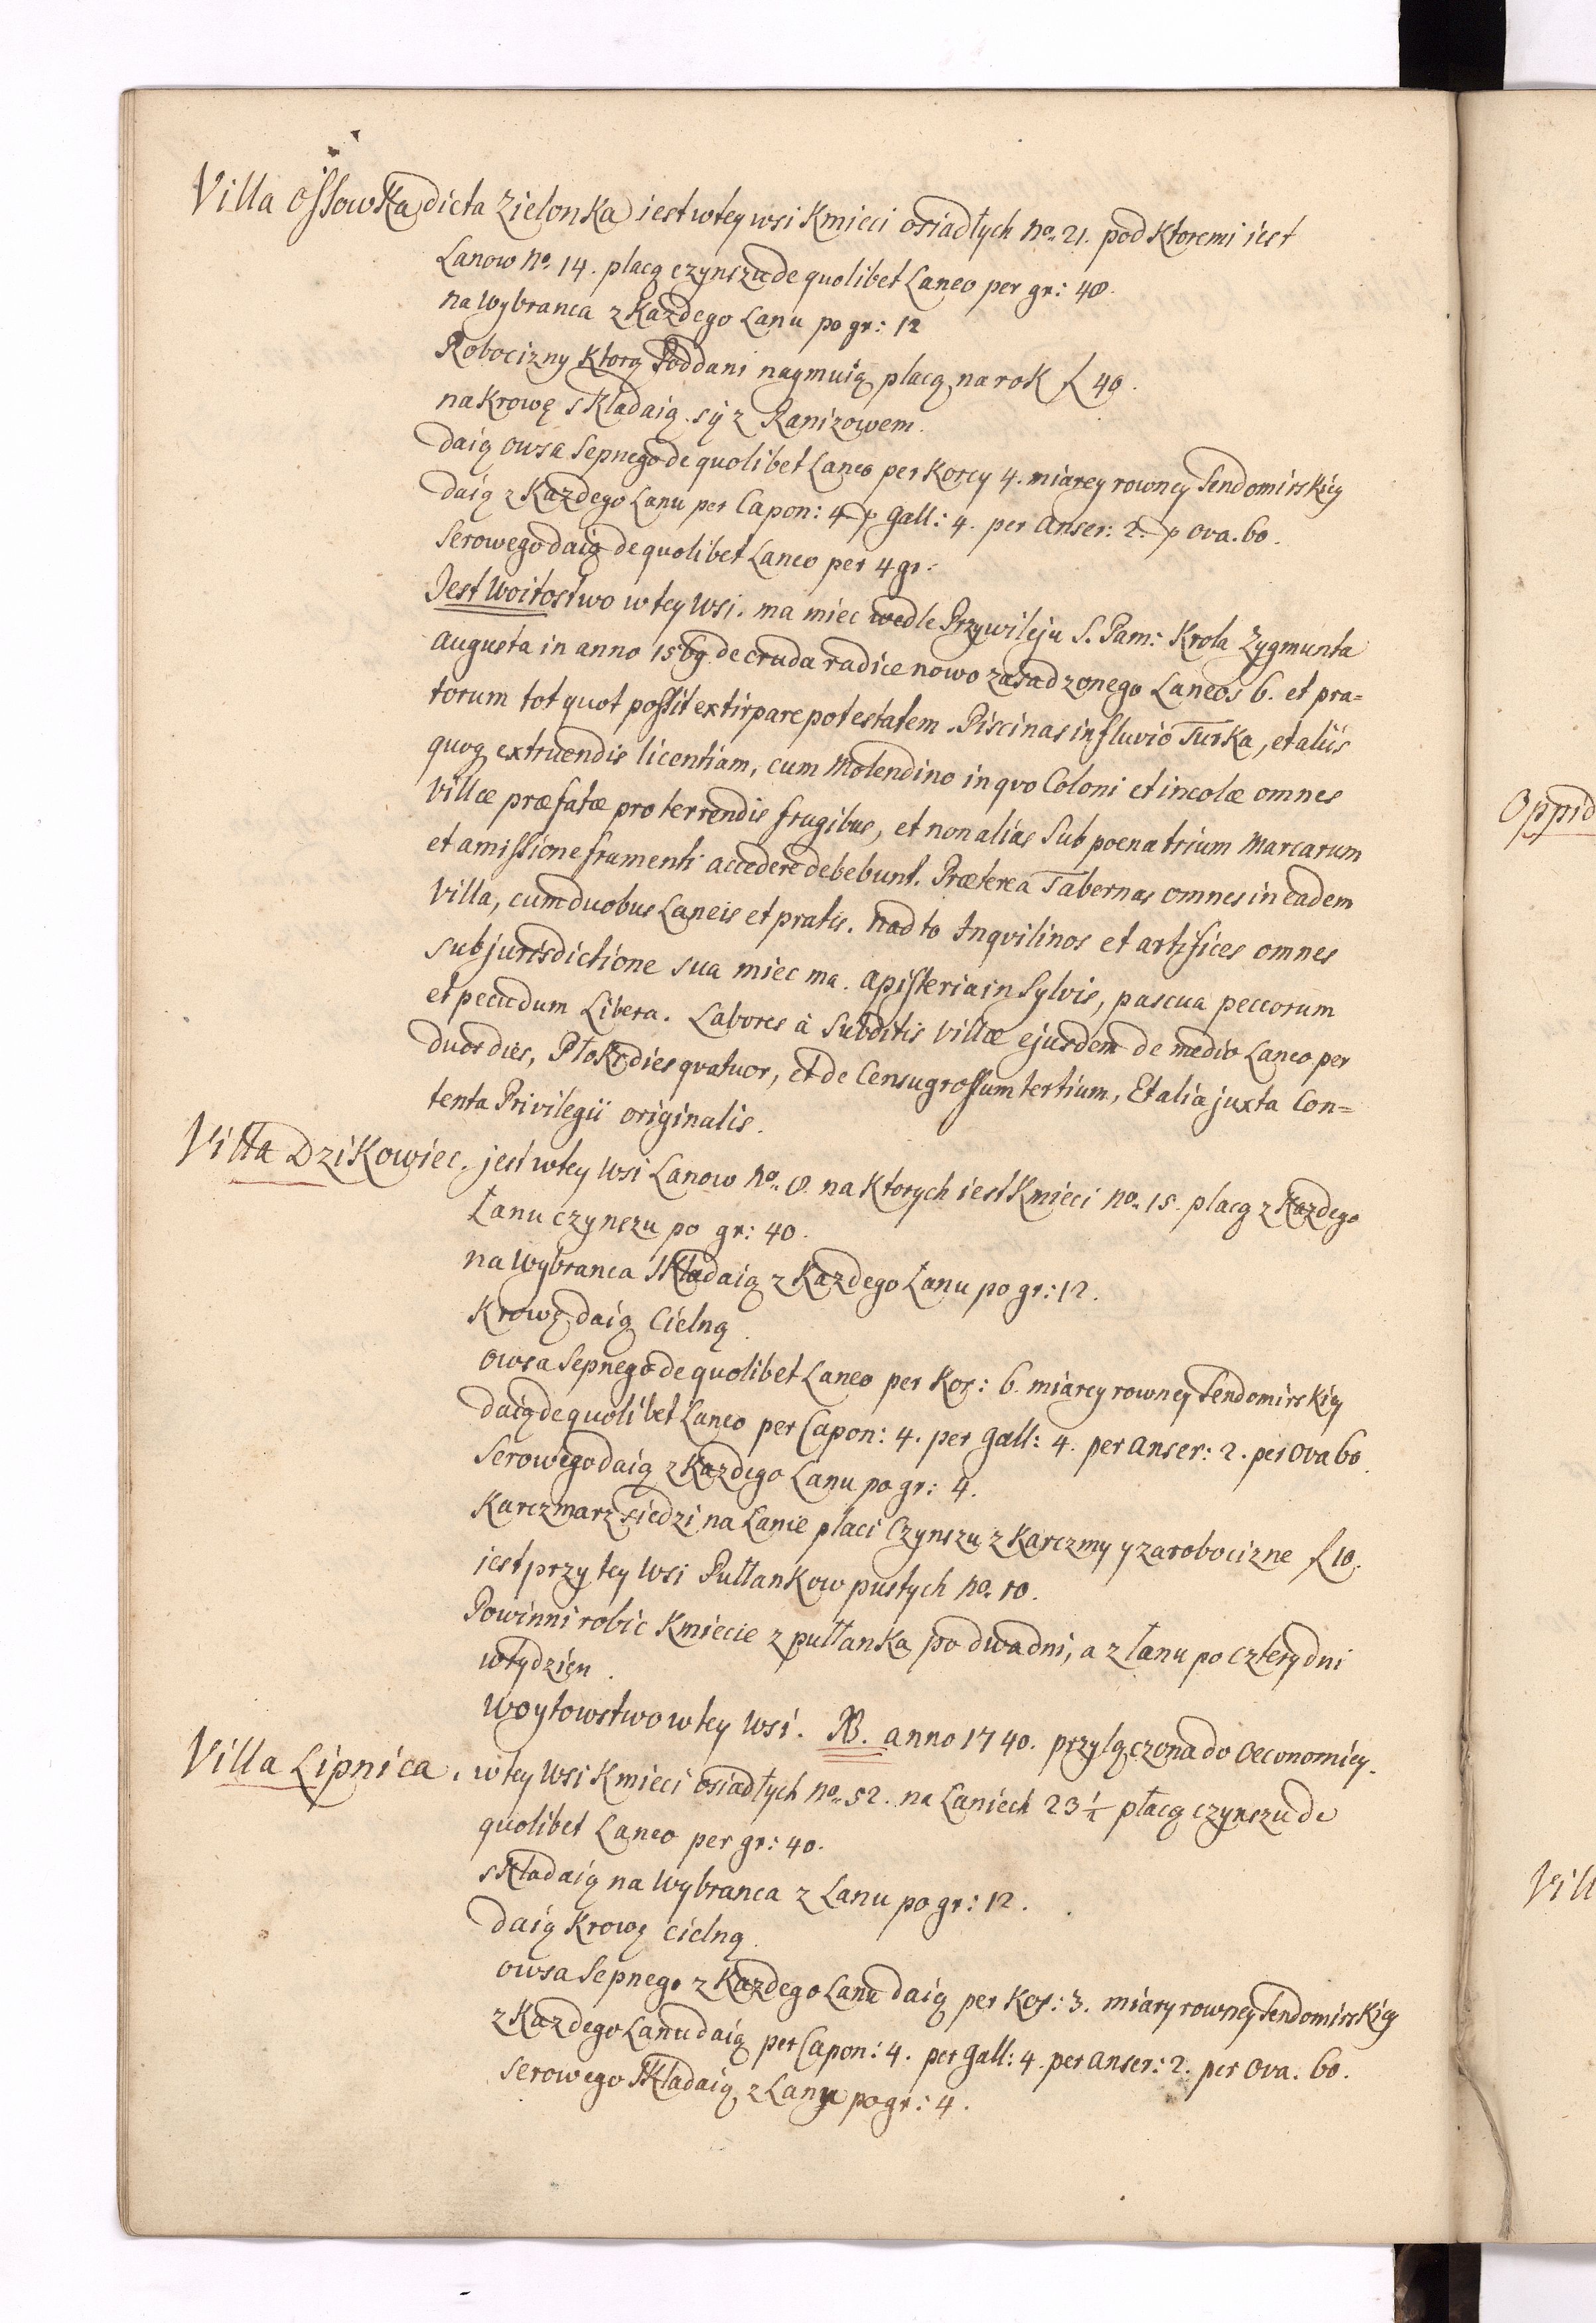 Villa Ossowska dicta Zielonka iest w tey wsi Kmieci osiadłych No. 21. pod Ktoremi iest
Lanow No. 14. placą czynszu de quolibet Laneo per gr: 48.
na Wybranca z Kazdego Lanu po gr: 12
Robocizny Ktorą Poddani naymuią placą na rok f 40.
na Krowę składaią sy z Ranizowem.
daią owsa Sepnego de quolibet Laneo per Korcy 4. miarey rowney Sendomirskiey
daią z Kazdego Lanu per Capon: 4. p Gall: 4. per Anser: 2. p Ova. 60.
Serowego daią de quolibet Laneo per 4 gr:
Jest Woitostwo w tey Wsi. ma miec wedle Przywileju S. Pam: Krola Zygmunta
Augusta in anno 1569 de cruda radice nowo zasadzonego Laneos 6. et pra=
torum tot quot possit extirpare potestatem. Piscinas in fluvio Turka, et aliis
quoq extruendis licentiam, cum Molendino in qvo Coloni et incolæ omnes
Villæ præfatæ pro terrendis frugibus, et non alias Sub poena trium Marcarum
et amissione frumenti accedere debebunt. Præterea Tabernas omnes in eadem
Villa, cum duobus Laneis et pratis. Nad to Inqvilinos et artifices omnes
sub jurisdictione sua miec ma. Apisteria in Sylvis, pascua peccorum
et pecudum Libera. Labores à Subditis Villæ ejusdem de medio Laneo per
duos dies, Płoki dies qvatuor, et de Censu grossum tertium, Et alia juxta Con=
tenta Privilegii originalis.
Villa Dzikowiec. jest w tey Wsi Lanow No. 8. na Ktorych iest Kmieci No. 15. placą z Kazdego
Łanu czynszu po gr: 40.
na Wybranca składaią z Kazdego Łanu po gr: 12.
Krowę daią Cielną.
Owsa Sepnego de quolibet Laneo per Kor: 6. miarey rowney Sendomirskiey
daią de quolibet Laneo per Capon: 4. per Gall: 4. per Anser: 2. per Ova 60.
Serowego daią z Kazdego Lanu po gr: 4.
Karczmarz siedzi na Lanie płaci Czynszu z Karczmy y za robocizne f 10.
iest przy tey Wsi Pułłankow pustych No. 10.
Powinni robic Kmiecie z pułłanka po dwa dni, a z łanu po cztery dni
w tydzien.
Woytowstwo w tey Wsi. NB. anno 1740. przyłączona do Oeconomiey.
Villa Lipnica. w tey Wsi Kmieci osiadłych No. 52. na Laniech 23 1/2 płacą czynszu de
quolibet Laneo per gr: 40.
składaią na Wybranca z Lanu po gr: 12.
daią Krowę cielną.
owsa Sepnego z Kazdego Lanu daią per Kor: 3. miary rowney Sendomirskiey
z Kazdego Lanu daią per Capon: 4. per Gall: 4. per Anser: 2. per Ova. 60.
Serowego składaią z Lanu po gr: 4.
Oppid
Vill